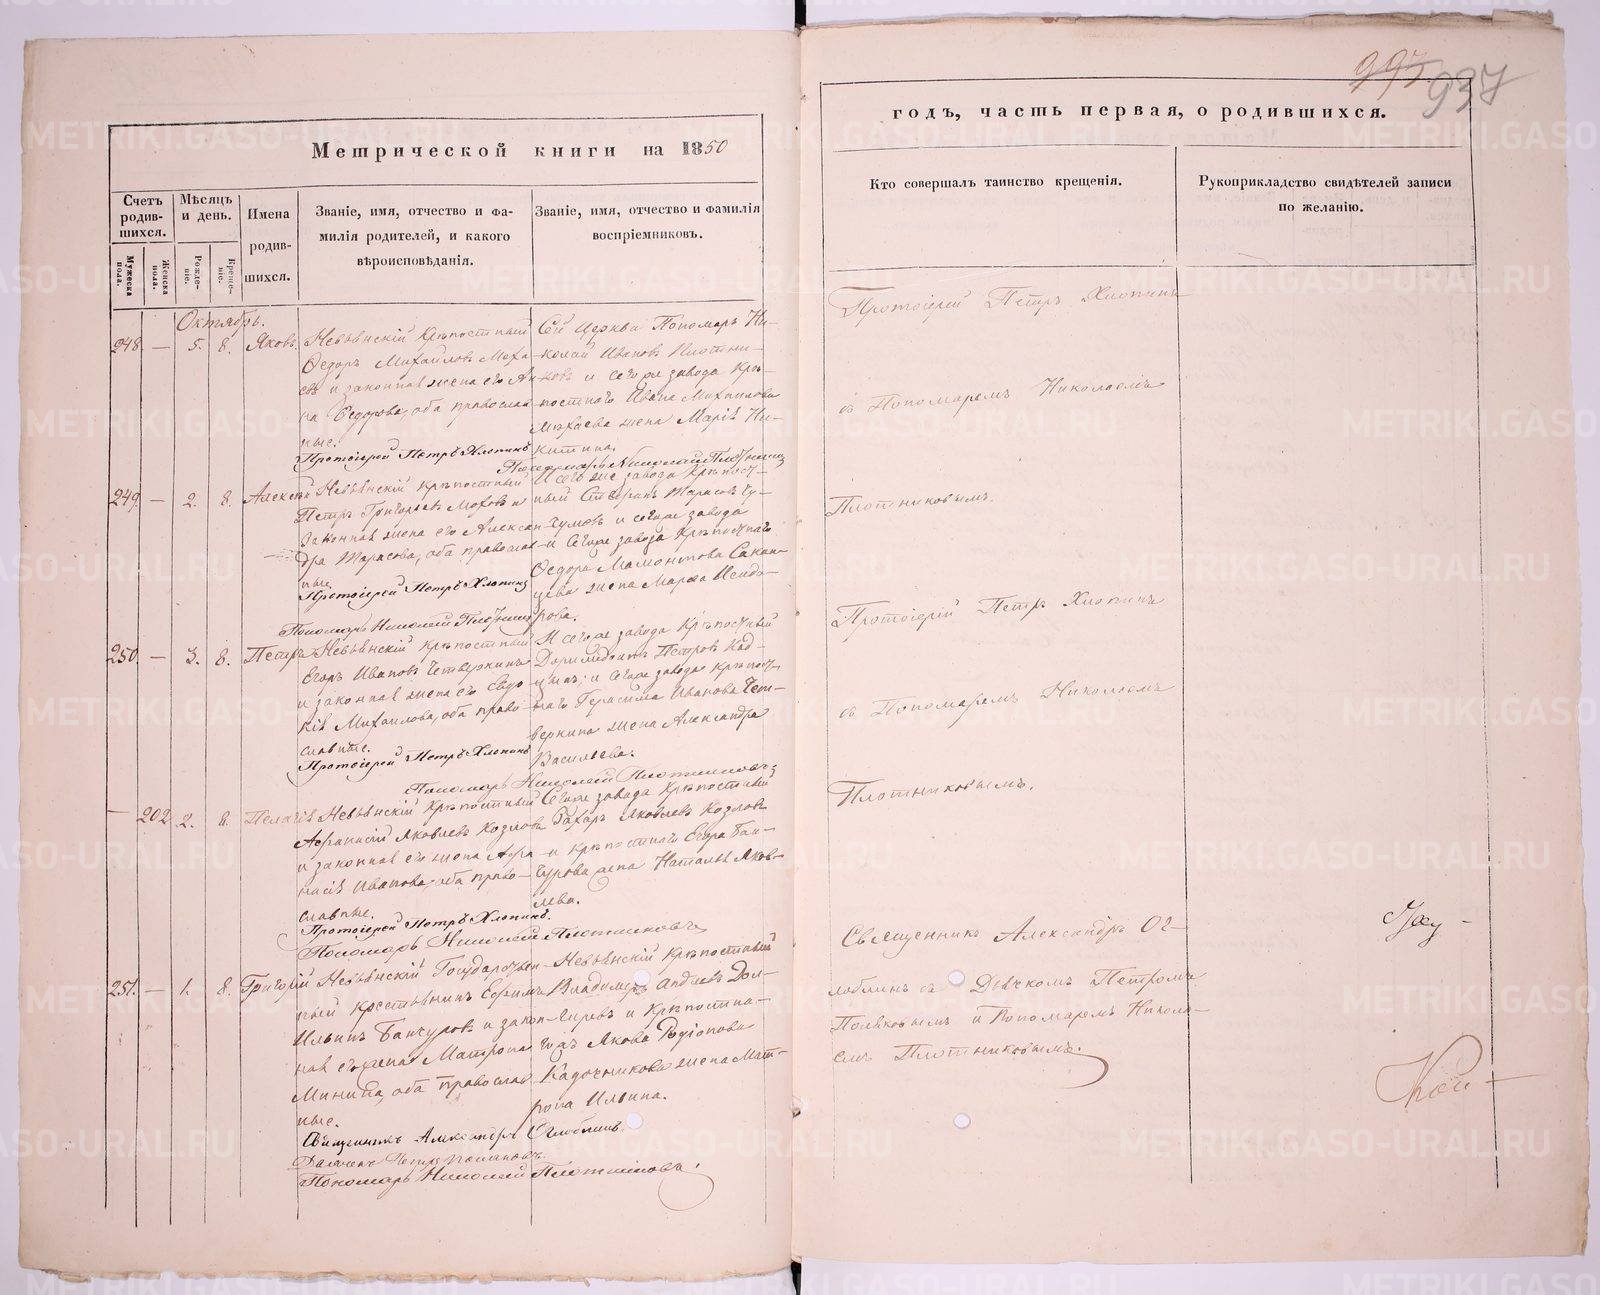 Метрической книги на 1850
Счетъ родив-шихся.
Мужеска пола.
Женска пола.
Мѣсяцъ и день.
Рожде-ніе.
Креще-ніе.
Имена родив-шихся.
Званіе, имя, отчество и фа-
милія родителей, и какого
вѣроисповѣданія.
Званіе, имя, отчество и фамилія
воспріемниковъ.
Октябрь.
248. — 5. 8. Яковъ.
Невьянскій крѣпостный
Ѳедоръ Михайловъ
и законная жена его Ан-
на Ѳедорова, оба православ-
ные.
Протоіерей Петръ Хлопинъ
Сей Церкви Пономарь Ни-
колай Ивановъ Плотни-
ковъ и сего же завода крѣ-
постнаго Ивана Михайлова
жена Марія Ни-
китина.
Пономарь Николай Плотниковъ
249. — 2. 8. Алексѣй
Невьянскій крѣпостный
Петръ Григорьевъ и
законная жена его Алексан-
дра Тарасова, оба православ-
ные.
Протоіерей Петръ Хлопинъ
И сего же завода крѣпост-
ный Тарасовъ
и сего же завода
и сего же завода крѣпостнаго
Ѳедора Мамонтова
жена Марѳа Исидо-
рова.
Пономарь Николай Плотниковъ
250. — 3. 8. Петръ
Невьянскій крѣпостный
Егоръ Ивановъ Четверкинъ
и законная жена его Евдо-
кія Михайлова, оба право-
славные.
Протоіерей Петръ Хлопинъ
И сего же завода крѣпостный
Доримедонтъ Петровъ
и сего же завода крѣпост-
наго Герасима Иванова Чет-
веркина жена Александра
Васильева.
Пономарь Николай Плотниковъ
— 202. 2. 8. Пелагія
Невьянскій крѣпостный
Аѳанасій Яковлевъ Козловъ
и законная его жена Аѳа-
насія Иванова, оба право-
славные.
Протоіерей Петръ Хлопинъ.
Сего же завода крѣпостный
Захаръ Яковлевъ Козловъ
и крѣпостнаго Егора Бан-
чурова жена Наталья Яков-
лева.
Пономарь Николай Плотниковъ
251. — 1. 8. Григорій
Невьянскій Государствен-
ный крестьянинъ Ефимъ
Ильинъ Банчуровъ и закон-
ная его жена Матрона
Минина, оба православ-
ные.
Невьянскій крѣпостный
Владимеръ
и крѣпостна-
го Якова Родіонова
Кадочникова жена Мат-
рона Ильина.
Священникъ Александръ Оглоблинъ
Дьяконъ Петръ Поляковъ.
Пономарь Николай Плотниковъ.
937
годъ, часть первая, о родившихся.
Кто совершалъ таинство крещенія.
Рукоприкладство свидѣтелей записи
по желанію.
Протоіерей Петръ Хлопинъ
съ Пономаремъ Николаемъ
Плотниковымъ.
Протоіерей Петръ Хлопинъ
съ Пономаремъ Николаемъ
Плотниковымъ.
Священникъ Александръ Ог-
лоблинъ съ Дьякомъ Петромъ
Поляковымъ и Пономаремъ Никола-
емъ Плотниковымъ.
METRIKI.GASO-URAL.RU